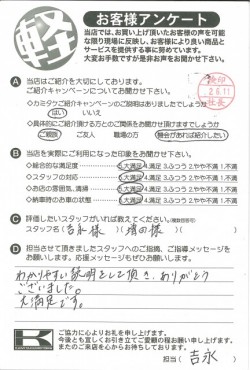 軽
お客様アンケート
当店では、お買い上げ頂いたお客様の声を可能
な限り現場に反映し、お客様により良い商品と
サービスを提供する事に努めています。
大変お手数ですが是非お声をお聞かせ下さい。
Ⓐ 当店はご紹介を大切にしております。
ご紹介キャンペーンについてお聞かせ下さい。
◇カミタケご紹介キャンペーンのご説明はありましたでしょうか
はい いいえ
◇具体的にご紹介頂ける方とのご関係をお聞かせ頂けますでしょうか
ご親戚 ご友人 職場の方 機会があれば紹介したい
Ⓑ 当店を実際にご利用になった印象をお聞かせ下さい。
◇総合的な満足度 5.大満足 4.満足 3.ふつう 2.やや不満 1.不満
◇スタッフの対応 5.大満足 4.満足 3.ふつう 2.やや不満 1.不満
◇お店の雰囲気、清掃 5.大満足 4.満足 3.ふつう 2.やや不満 1.不満
◇納車時のお車の状態 5.大満足 4.満足 3.ふつう 2.やや不満 1.不満
Ⓒ 評価したいスタッフがいれば教えてください。(複数回答可)
スタッフ名( 吉永様 )( 増田様 )
Ⓓ 担当させて頂きましたスタッフへのご指摘、ご指導メッセージを
お願いします。応援メッセージもぜひお願いします。
わかりやすい説明をして頂き、ありがとう
ございました。
大満足です。
K
ご協力に心よりお礼を申し上げます。
今後とも宜しくお引き立てご愛顧の程お願い申し上げます。
またのご来店を心からお待ちしております。
担当( 吉永 )